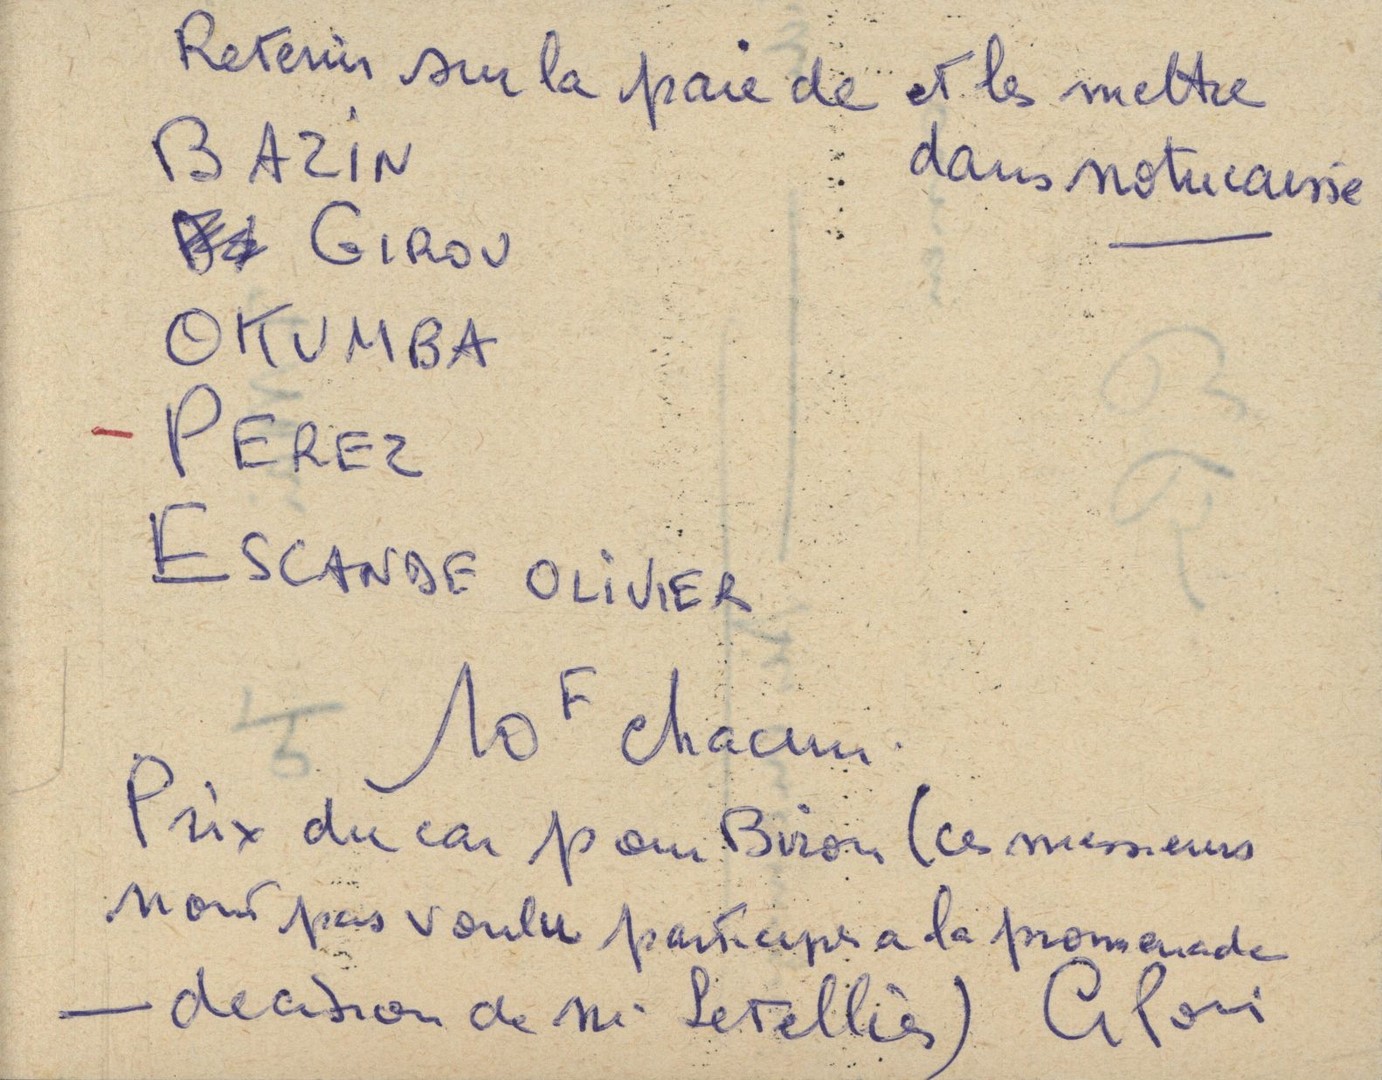 Retenir sur la paie de et les mettre
dans notre caisse
BAZIN
GIROU
OKUMBA
- PEREZ
ESCANDE OLIVIER
10F chacun.
Prix du car pour Biron (ces messieurs
nont pas voulu participer a la promenade
— decision de Mr Letelliès)